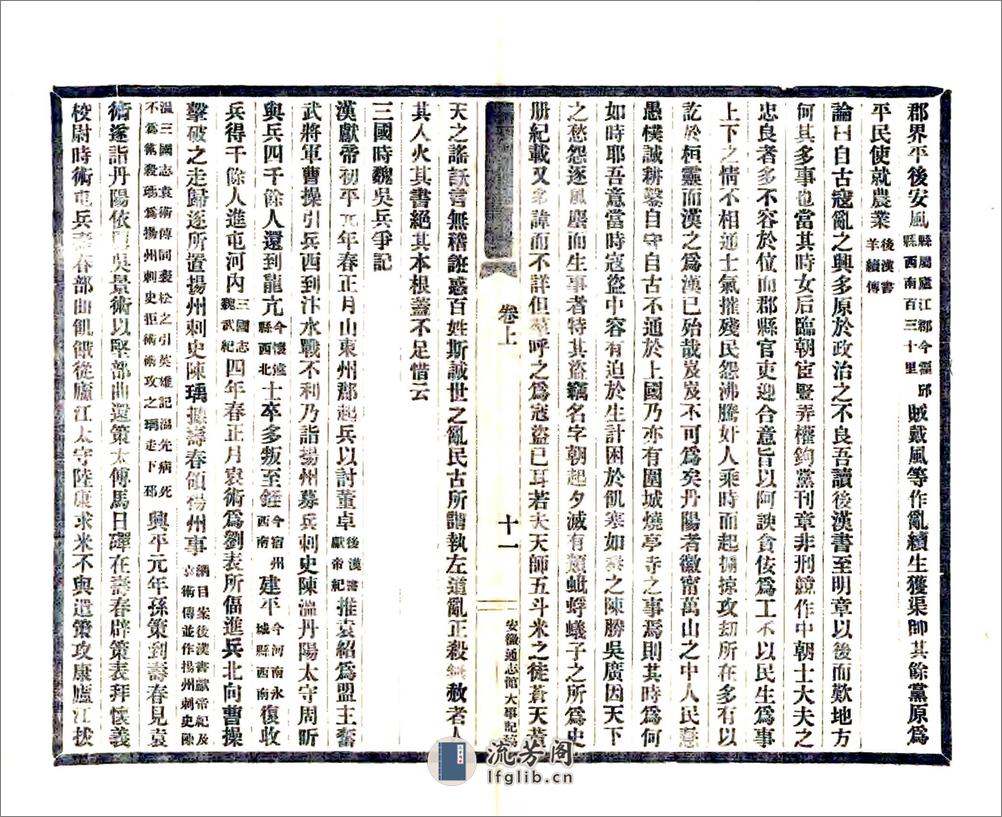 郡界平後安風縣屬廬江郡今霍邱縣西南百三十里賊戴風等作亂續生獲渠帥其餘黨原爲
平民使就農業後漢書羊續傳
論曰自古寇亂之興多原於政治之不良吾讀後漢書至明章以後而歎地方
何其多事也當其時女后臨朝宦豎弄權鉤黨刊章非刑競作中朝士大夫之
忠良者多不容於位而郡縣官吏迎合意旨以阿諛貪佞爲工不以民生爲事
上下之情不相通士氣摧殘民怨沸騰奸人乘時而起擄掠攻刼所在多有以
訖於桓靈而漢之爲漢已殆哉岌岌不可爲矣丹陽者徽甯萬山之中人民意
愚樸誠耕鑿自守自古不通於上國乃亦有圍城燒亭寺之事焉則其時爲何
如時耶吾意當時寇盜中容有迫於生計困於飢寒如秦之陳勝吳廣因天下
之愁怨逐風塵而生事者特其盜竊名字朝起夕滅有類蚍蜉蟻子之所爲史
册紀載又多諱而不詳但羣呼之爲寇盜已耳若夫天師五斗米之徒蒼天黃
卷上
十一
安徽通志館大事記稿
天之謠訞言無稽誑惑百姓斯誠世之亂民古所謂執左道亂正殺無赦者人
其人火其書絕其本根蓋不足惜云
三國時魏吳兵爭記
漢獻帝初平元年春正月山東州郡起兵以討董卓後漢書獻帝紀推袁紹爲盟主奮
武將軍曹操引兵西到汴水戰不利乃詣揚州募兵刺史陳溫丹陽太守周昕
與兵四千餘人還到龍亢今懷遠縣西北士卒多叛至銍今宿州西南建平今河南永城縣西南復收
兵得千餘人進屯河內三國志魏武紀四年春正月袁術爲劉表所偪進兵北向曹操
擊破之走歸逐所置揚州刺史陳瑀據壽春領揚州事綱目案後漢書獻帝紀及袁術傳並作揚州刺史陳
溫三國志袁術傳同裴松之引英雄記溫先病死不爲術殺瑀爲揚州刺史拒術術攻之瑀走下邳興平元年孫策到壽春見袁
術遂詣丹陽依舅吳景術以堅部曲還策太傅馬日磾在壽春辟策表拜懷義
校尉時術屯兵壽春部曲飢餓從廬江太守陸康求米不與遣策攻康廬江拔
流芳阁
lfglib.cn